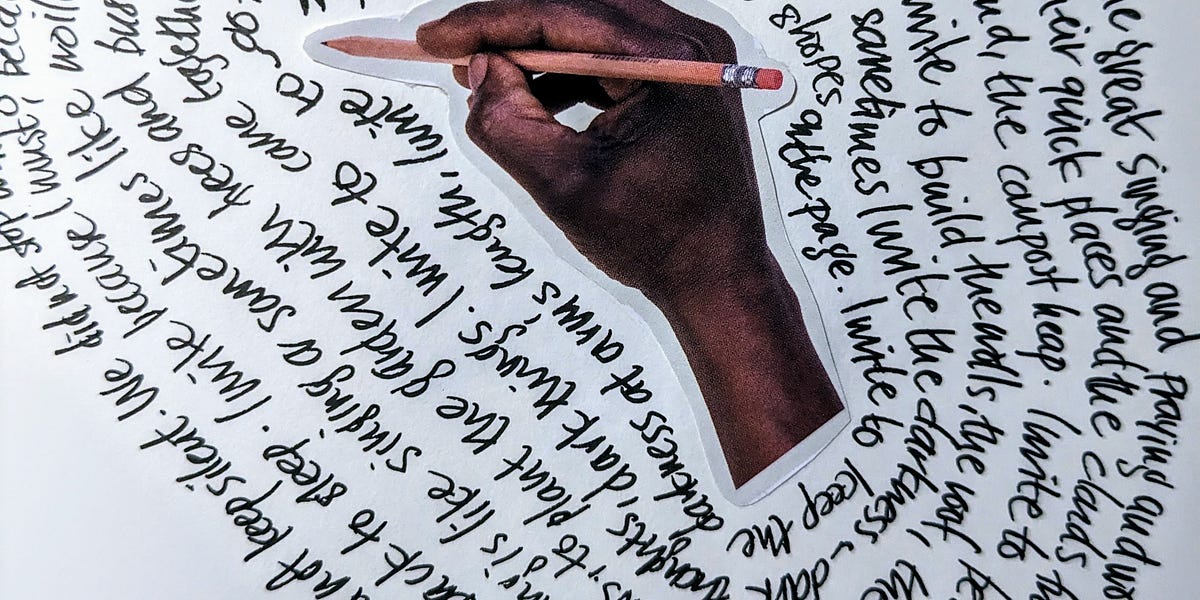 he great singing and praying and wo
heir quick places and the clouds th
nd, the compost heap. I write to
write to build the walls, the roof, te
sometimes I write the darkness, the
shapes on the page. I write to keep the dark
darkness at arm's length, I write to go
thoughts, dark things. I write to come togeth
to plant the garden with trees and bus
is like singing a sometimes like
back to sleep. I write because I must,
not keep silent. We did not stop until